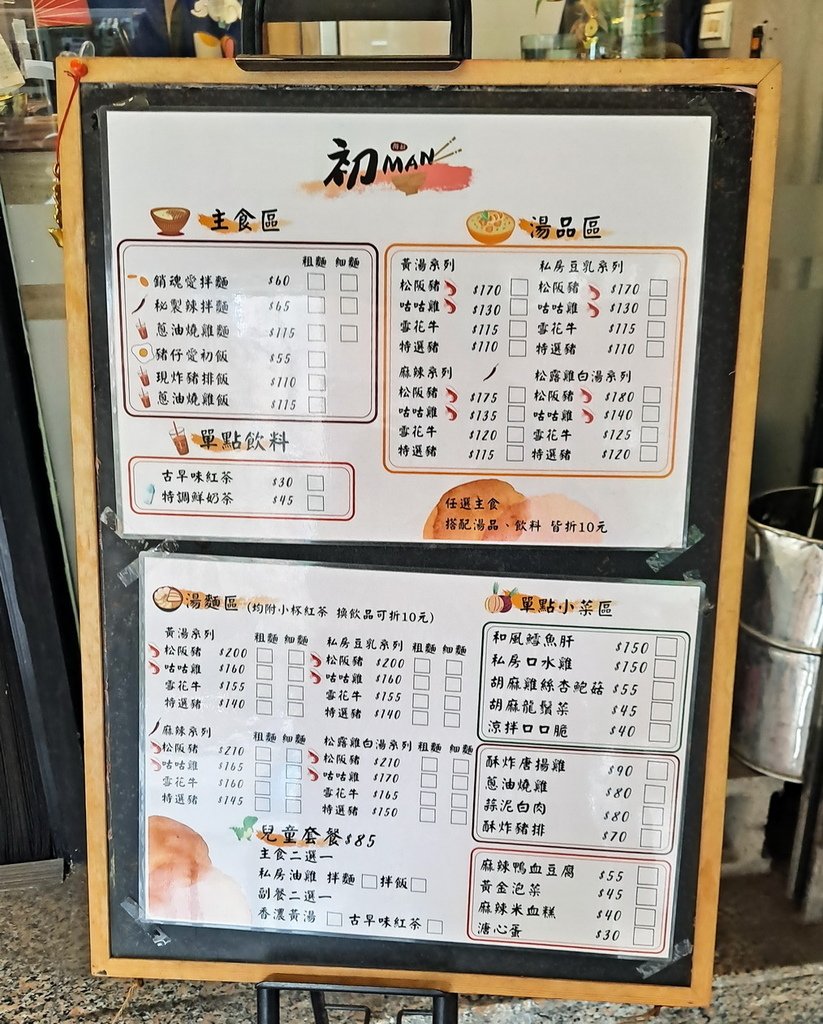 初MAN
主食區
粗麵 細麵
銷魂愛拌麵 $60
秘製辣拌麵 $65
蔥油燒雞麵 $115
豬仔愛初飯 $55
現炸豬排飯 $110
蔥油燒雞飯 $115
單點飲料
古早味紅茶 $30
特調鮮奶茶 $45
湯品區
黃湯系列
松阪豬 $170
咕咕雞 $130
雪花牛 $115
特選豬 $110
私房豆乳系列
松阪豬 $170
咕咕雞 $130
雪花牛 $115
特選豬 $110
麻辣系列
松阪豬 $175
咕咕雞 $135
雪花牛 $120
特選豬 $115
松露雞白湯系列
松阪豬 $180
咕咕雞 $140
雪花牛 $125
特選豬 $120
任選主食
搭配湯品、飲料 皆折10元
湯麵區 (均附小杯紅茶 換飲品可折10元)
黃湯系列 粗麵 細麵
松阪豬 $200
咕咕雞 $160
雪花牛 $155
特選豬 $140
私房豆乳系列 粗麵 細麵
松阪豬 $200
咕咕雞 $160
雪花牛 $155
特選豬 $140
麻辣系列 粗麵 細麵
松阪豬 $210
咕咕雞 $165
雪花牛 $160
特選豬 $145
松露雞白湯系列 粗麵 細麵
松阪豬 $210
咕咕雞 $170
雪花牛 $165
特選豬 $150
兒童套餐$85
主食二選一
私房油雞 拌麵 拌飯
副餐二選一
香濃黃湯 古早味紅茶
單點小菜區
和風鱈魚肝 $150
私房口水雞 $150
胡麻雞絲杏鮑菇 $55
胡麻龍鬚菜 $45
涼拌口口脆 $40
酥炸唐揚雞 $90
蔥油燒雞 $80
蒜泥白肉 $80
酥炸豬排 $70
麻辣鴨血豆腐 $55
黃金泡菜 $45
麻辣米血糕 $40
溏心蛋 $30